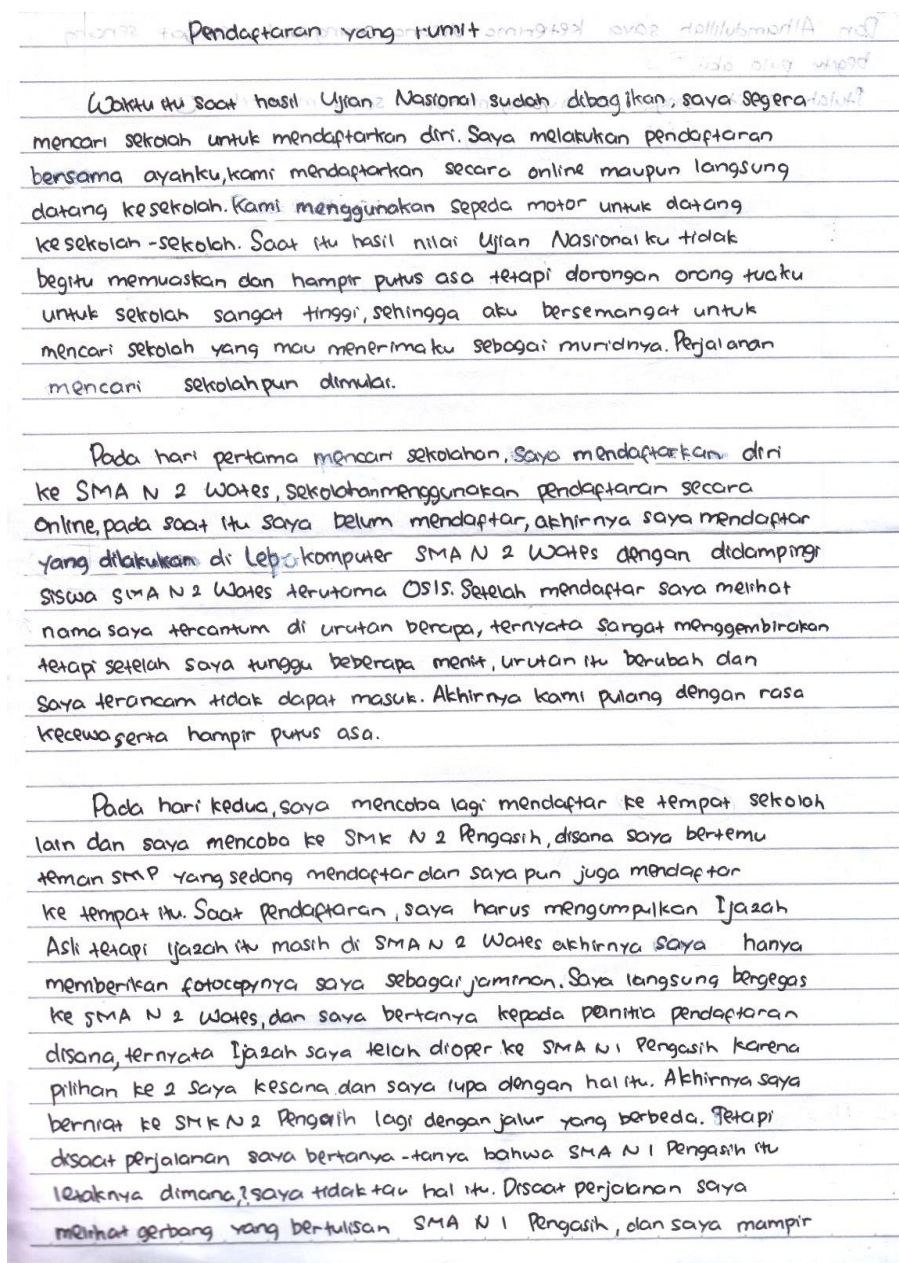 Pendaftaran yang rumit
Waktu itu saat hasil Ujian Nasional sudah dibagikan, saya segera
mencari sekolah untuk mendaftarkan diri. Saya melakukan pendaftaran
bersama ayahku, kami mendaftarkan secara online maupun langsung
datang kesekolah. Kami menggunakan sepeda motor untuk datang
kesekolah-sekolah. Saat itu hasil nilai Ujian Nasionalku tidak
begitu memuaskan dan hampir putus asa tetapi dorongan orang tuaku
untuk sekolah sangat tinggi, sehingga aku bersemangat untuk
mencari sekolah yang mau menerimaku sebagai muridnya. Perjalanan
mencari sekolahpun dimulai.
Pada hari pertama mencari sekolahan, saya mendaftarkan diri
ke SMA N 2 Wates, sekolahanmenggunakan pendaftaran secara
Online, pada saat itu saya belum mendaftar, akhirnya saya mendaftar
yang dilakukan di Leb komputer SMA N 2 Wates dengan didampingi
siswa SMA N 2 Wates terutama OSIS. Setelah mendaftar saya melihat
nama saya tercantum di urutan berapa, ternyata sangat menggembirakan
tetapi setelah saya tunggu beberapa menit, urutan itu berubah dan
saya terancam tidak dapat masuk. Akhirnya kami pulang dengan rasa
kecewa serta hampir putus asa.
Pada hari kedua, saya mencoba lagi mendaftar ke tempat sekolah
lain dan saya mencoba ke SMK N 2 Pengasih, disana saya bertemu
teman SMP yang sedang mendaftar dan saya pun juga mendaftar
ke tempat itu. Saat pendaftaran, saya harus mengumpulkan Ijazah
Asli tetapi Ijazah itu masih di SMA N 2 Wates akhirnya saya hanya
memberikan fotocopynya saya sebagai jaminan. Saya langsung bergegas
ke SMA N 2 Wates, dan saya bertanya kepada panitia pendaftaran
disana, ternyata Ijazah saya telah dioper ke SMA N 1 Pengasih karena
pilihan ke 2 saya kesana dan saya lupa dengan hal itu. Akhirnya saya
berniat ke SMK N 2 Pengasih lagi dengan jalur yang berbeda. Tetapi
disaat perjalanan saya bertanya-tanya bahwa SMA N 1 Pengasih itu
letaknya dimana? saya tidak tau hal itu. Disaat perjalanan saya
melihat gerbang yang bertulisan SMA N 1 Pengasih, dan saya mampir